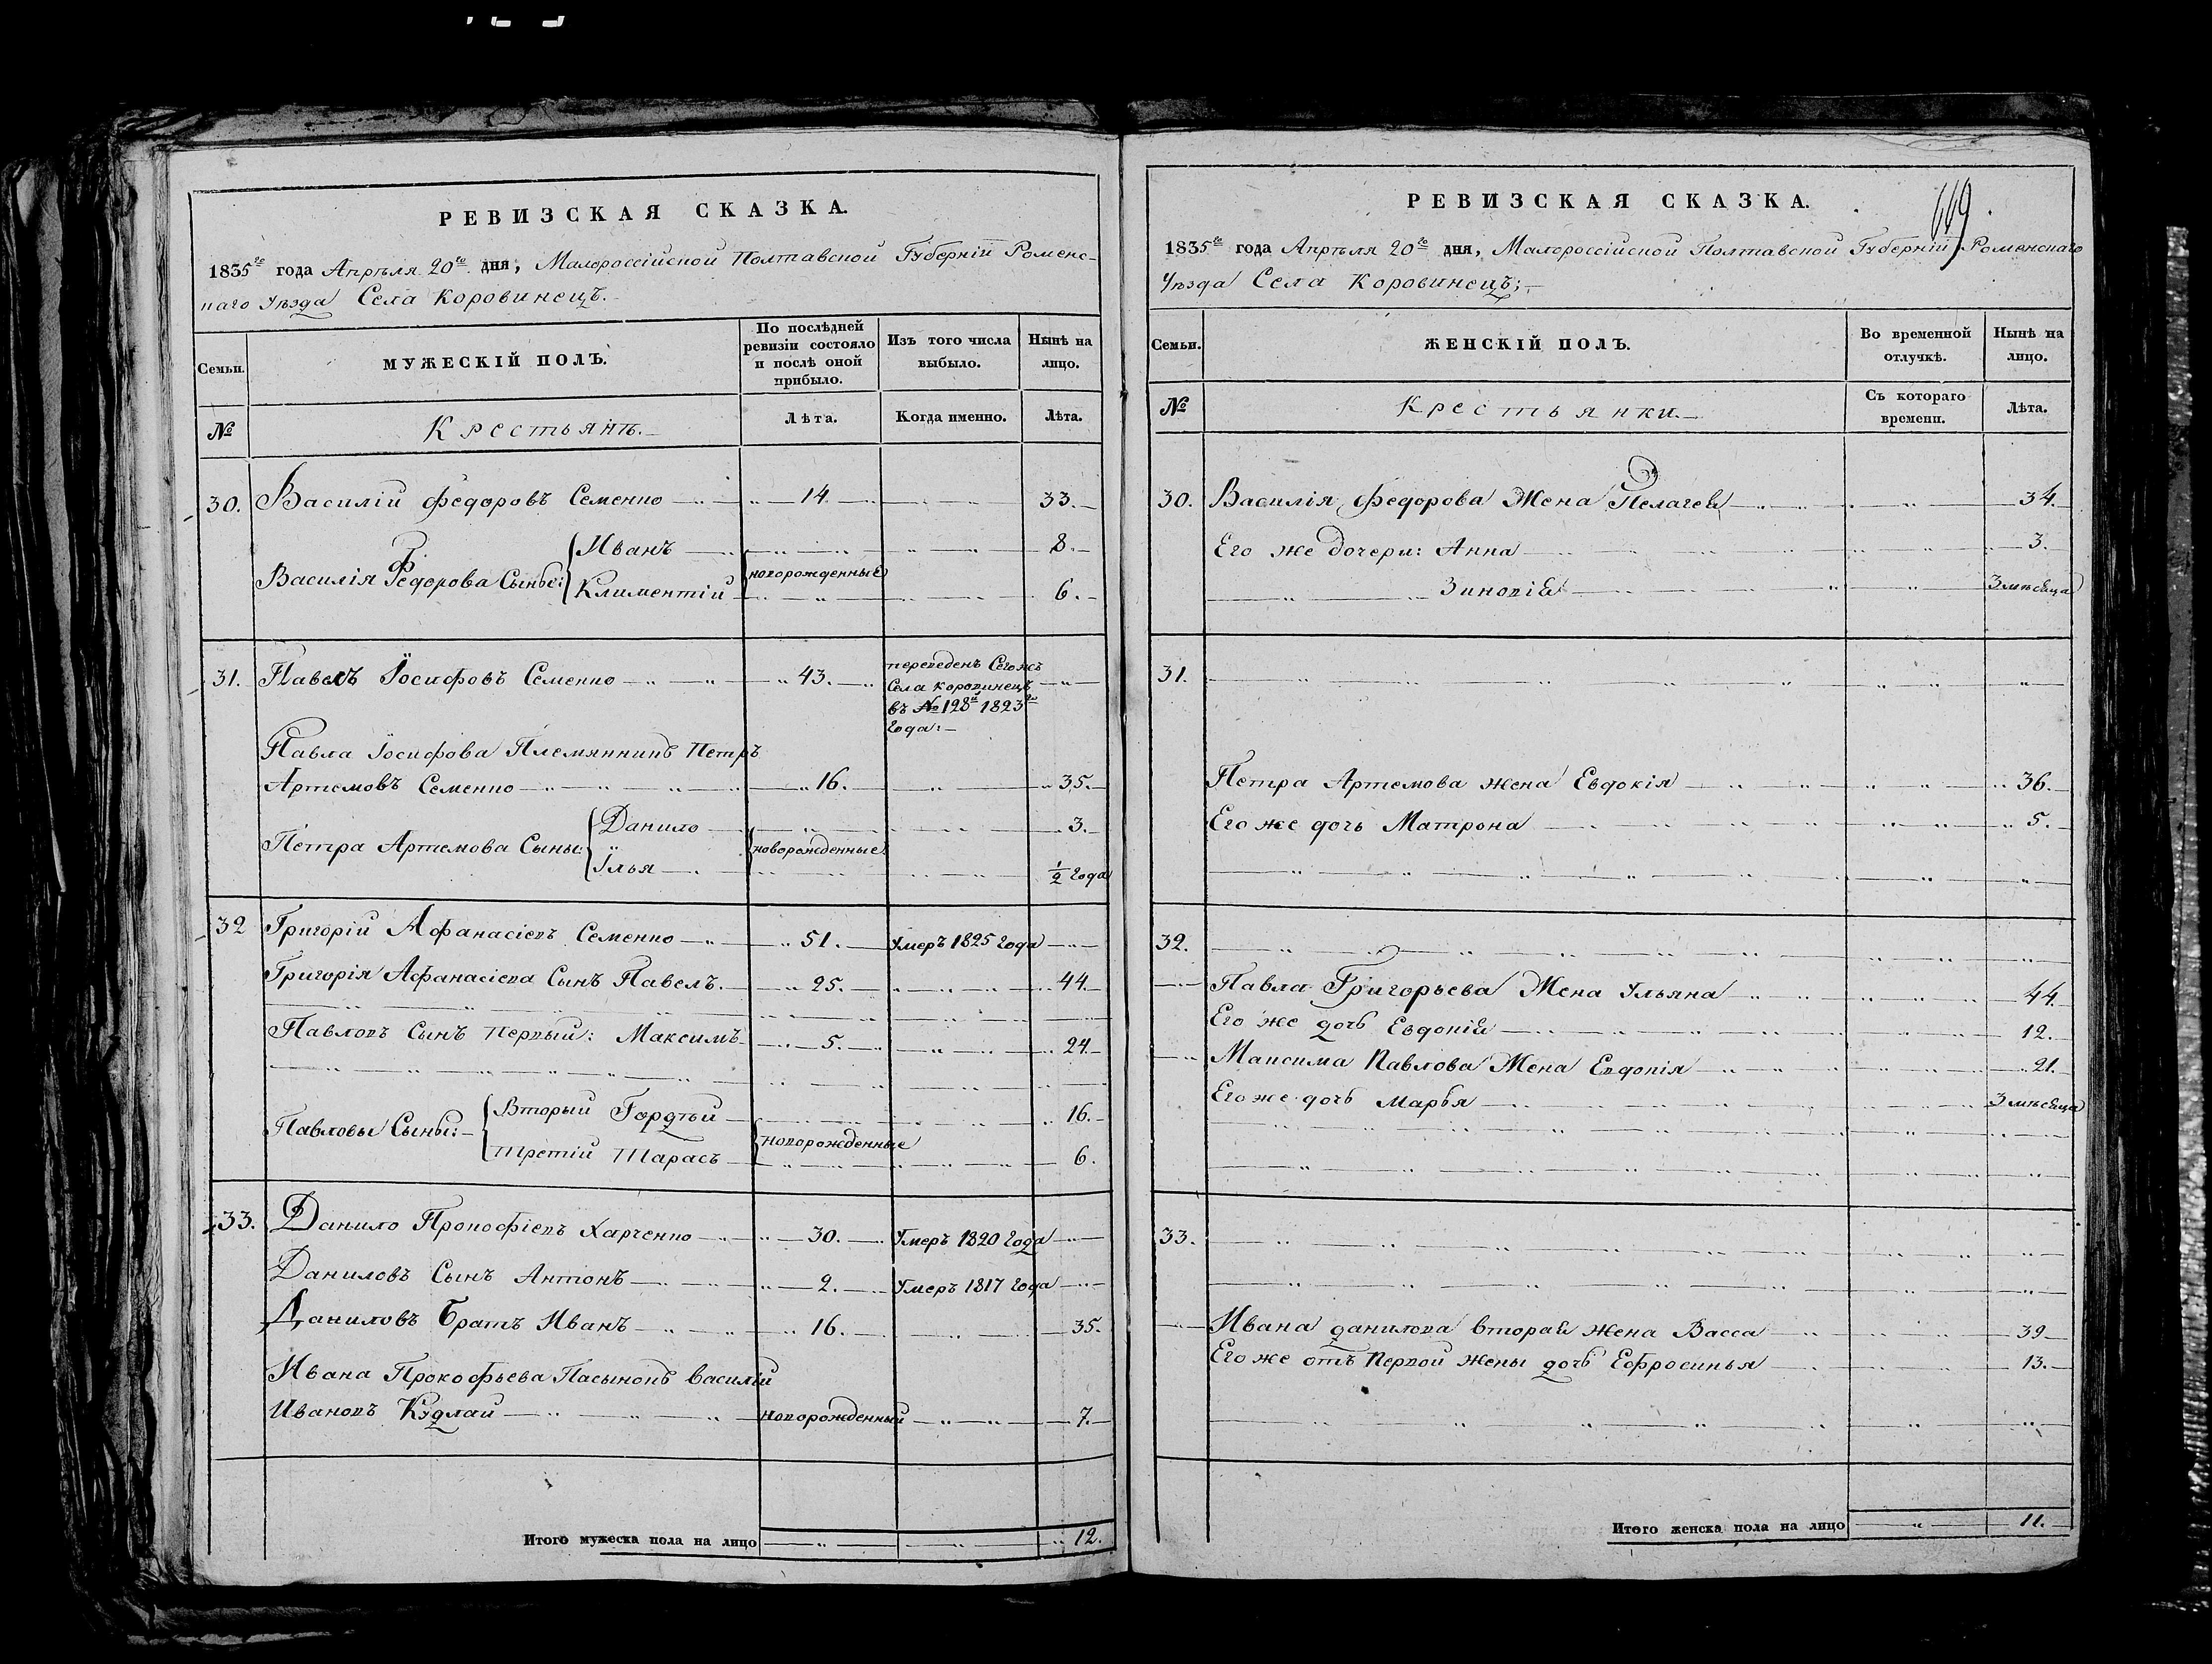 РЕВИЗСКАЯ СКАЗКА.
1835го года Апрѣля 20го дня, Малороссійской Полтавской Губерніи Роменс-
каго Уѣзда Села Коровинецъ.
Семьи.
МУЖЕСКІЙ ПОЛЪ.
По послѣдней ревизіи состояло и послѣ оной прибыло.
Изъ того числа выбыло.
Нынѣ на лицо.
№
Крестьянъ.
Лѣта.
Когда именно.
Лѣта.
30. Василій Федоровъ Семенко 14. 33.
Василія Федорова Сыны: Иванъ 8.
новорожденные
Климентій 6.
31. Павелъ Іосифовъ Семенко 43. переведенъ Сегожъ
Села Коровинецъ
въ № 128й 1823го
Года:
Павла Іосифова Племянникъ Петръ
Артемовъ Семенко 16. 35.
Петра Артемова Сыны: Данило 3.
новорожденные
Илья 1/2 года
32 Григорій Афанасіевъ Семенко 51. Умеръ 1825 года
Григорія Афанасіева Сынъ Павелъ. 25. 44.
Павловъ Сынъ первый: Максимъ 5. 24.
Павловы Сыны: Второй Гордѣй 16.
новорожденные
третій Тарасъ 6.
33. Данило Прокофіевъ Харченко 30. Умеръ 1820 Года
Даниловъ Сынъ Антонъ 2. Умеръ 1817 Года
Даниловъ Братъ Иванъ 16. 35.
Ивана Прокофьева Пасынокъ василій
Ивановъ Кудлай новорожденный 7.
Итого мужеска пола на лицо 12.
РЕВИЗСКАЯ СКАЗКА.
1835го года Апрѣля 20го дня, Малороссійской Полтавской Губерніи Роменскаго
Уѣзда Села Коровинецъ;
Семьи.
ЖЕНСКІЙ ПОЛЪ.
Во временной отлучкѣ.
Нынѣ на лицо.
№
Крестьянки.
Съ котораго времени.
Лѣта.
30. Василія Федорова Жена Пелагея 34.
Его же дочери: Анна 3.
Зиновія 3 мѣсяца
31.
Петра Артемова жена Евдокія 36.
Его же дочь Матрона 5.
32.
Павла Григорьева Жена Ульяна 44.
Его же дочь Евдокія 12.
Максима Павлова Жена Евдокія 21.
Его же дочь Марья 3 мѣсяца
33.
Ивана данилова вторая жена Васса 39
Его же отъ первой жены дочь Ефросинья 13.
Итого женска пола на лицо 11.